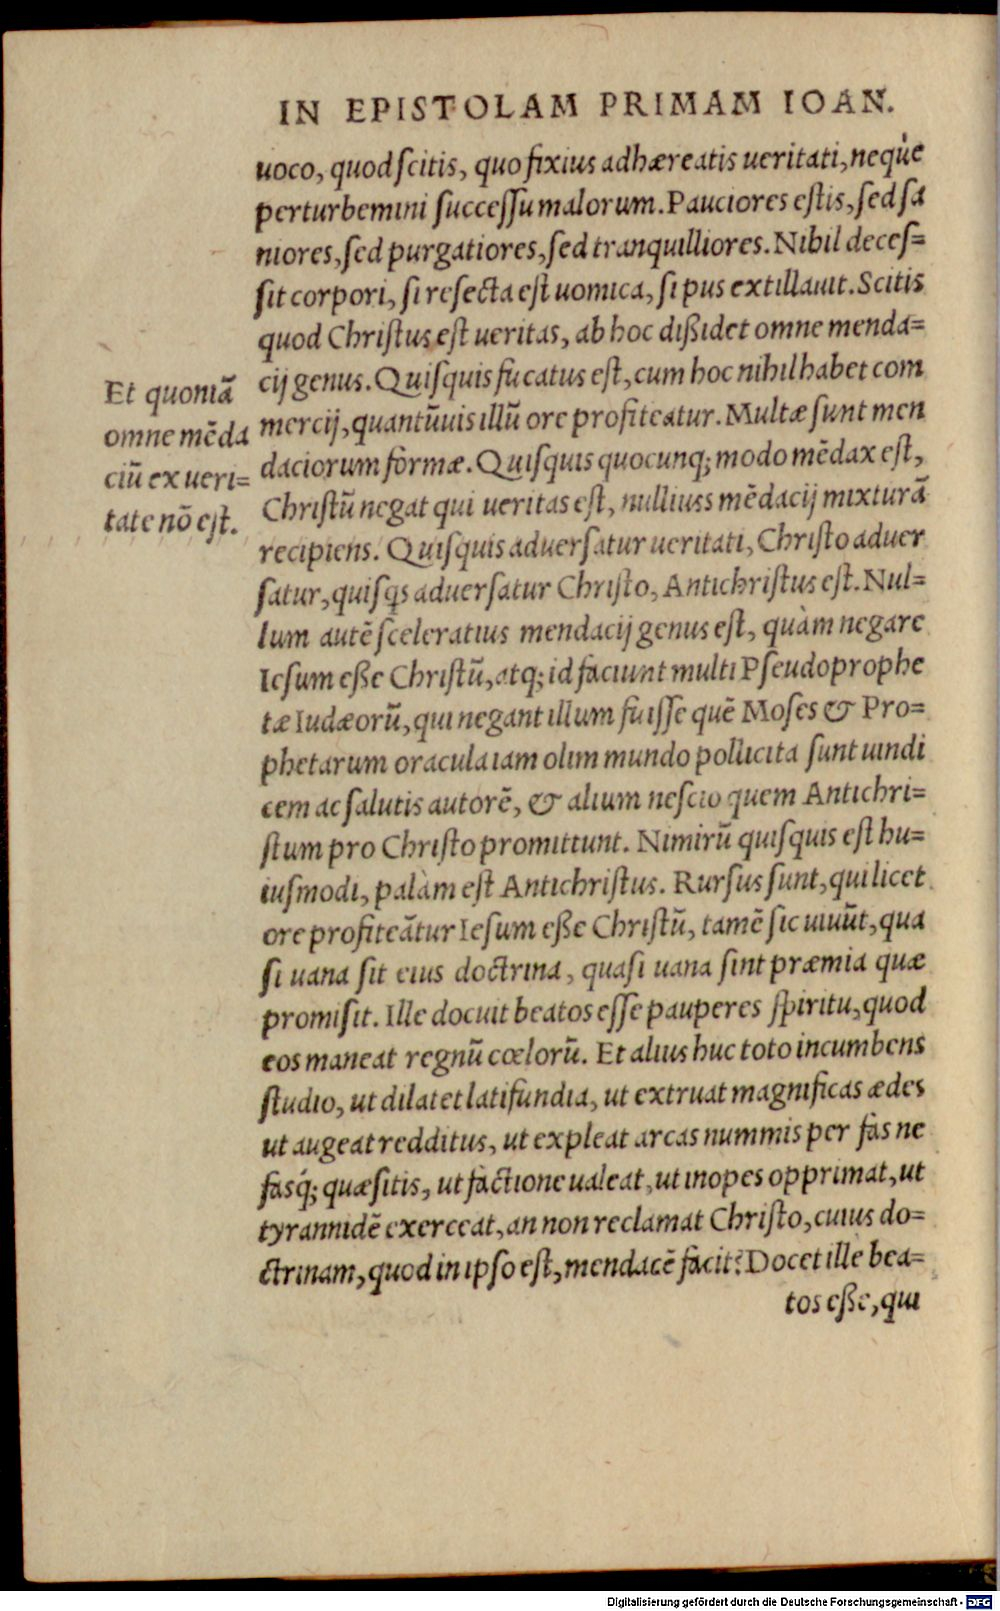 IN EPISTOLAM PRIMAM IOAN.
uoco, quod ſcitis, quo fixius adhæreatis ueritati, neq̀ue
perturbemini ſucceſſu malorum. Pauciores eſtis, ſed ſa
niores, ſed purgatiores, ſed tranquilliores. Nihil deceſ=
ſit corpori, ſi reſecta eſt uomica, ſi pus extillauit. Scitis
quod Chriſtus eſt ueritas, ab hoc dißidet omne menda=
cij genus. Quiſquis fucatus eſt, cum hoc nihil habet com
mercij, quantũuis illũ ore profiteatur. Multæ ſunt men
daciorum formæ. Quiſquis quocunq; modo mẽdax eſt,
Chriſtũ negat qui ueritas eſt, nullius mẽdacij mixturã
recipiens. Quiſquis aduerſatur ueritati, Chriſto aduer
ſatur, quiſq̃s aduerſatur Chriſto, Antichriſtus eſt. Nul=
lum autẽ ſceleratius mendacij genus eſt, quàm negare
Ieſum eße Chriſtũ, atq; id faciunt multi Pſeudoprophe
tæ Iudæorũ, qui negant illum fuiſſe quẽ Moſes & Pro=
phetarum oracula iam olim mundo pollicita ſunt uindi
cem ac ſalutis autorẽ, & alium neſcio quem Antichri=
ſtum pro Chriſto promittunt. Nimirũ quiſquis eſt hu=
iuſmodi, palàm eſt Antichriſtus. Rurſus ſunt, qui licet
ore profiteãtur Ieſum eße Chriſtũ, tamẽ ſic uiuũt, qua
ſi uana ſit eius doctrina, quaſi uana ſint præmia quæ
promiſit. Ille docuit beatos eſſe pauperes ſpiritu, quod
eos maneat regnũ cœlorũ. Et alius huc toto incumbens
ſtudio, ut dilatet latifundia, ut extruat magnificas ædes
ut augeat redditus, ut expleat arcas nummis per fas ne
faſq́; quæſitis, ut factione ualeat, ut inopes opprimat, ut
tyrannidẽ exerceat, an non reclamat Chriſto, cuius do=
ctrinam, quod in ipſo eſt, mendacẽ facit? Docet ille bea=
tos eße, qui
Et quoniã
omne mẽda
ciũ ex ueri=
tate nõ eſt.
Digitalisierung gefördert durch die Deutsche Forschungsgemeinschaft - DFG